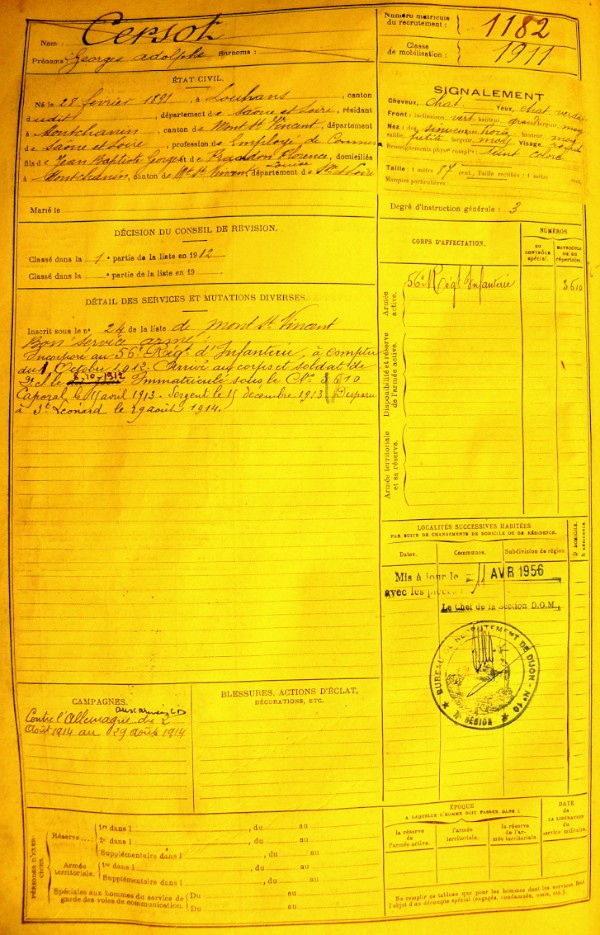 Nom : Cersot
Prénoms : Georges Adolphe Surnoms :
Numéro matricule du recrutement : 1182
Classe de mobilisation : 1911
ÉTAT CIVIL.
Né le 28 février 1891, à Louhans, canton
dudit, département de Saône et Loire, résidant
à Montchanin, canton de Mont St Vincent, département
de Saône et Loire, profession de Employé de Comm
fils de Jean Baptiste Georges et de Florence, domiciliés
Louise
à Montchanin, canton de Mt St Vincent, département de Sne et Loire
Marié le
SIGNALEMENT
Cheveux, chat. Yeux, chat verd
Front : inclinaison vert hauteur grand largeur moy
Nez : dos sinueux base horiz hauteur moy
petite moy Visage rond
Renseignements physion. compl. : teint coloré
Taille : 1 mètre 54 cent. Taille rectifiée : 1 mètre cent.
Marques particulières :
Degré d'instruction générale : 3
DÉCISION DU CONSEIL DE REVISION.
Classé dans la 1e partie de la liste en 1912
Classé dans la e partie de la liste en 19
CORPS D'AFFECTATION.
NUMÉROS
AU CONTRÔLE SPÉCIAL.
MATRICULE OU AU RÉPERTOIRE.
Armée active.
56e Régt Infanterie
3610
Disponibilité et réserve de l'armée active.
Armée territoriale et sa réserve.
DÉTAIL DES SERVICES ET MUTATIONS DIVERSES.
Inscrit sous le n° 24 de la liste de Mont St Vincent
Bon service armé
Incorporé au 56e Régt d'Infanterie, à compter
du 1 Octobre 1912. Arrivé au corps et soldat de
2e cl le 8.10.1912 Immatriculé sous le No 3610
Caporal le 15 avril 1913. Sergent le 15 décembre 1913. Disparu
à St Léonard le 29 août 1914.
LOCALITÉS SUCCESSIVES HABITÉES
PAR SUITE DE CHANGEMENTS DE DOMICILE OU DE RÉSIDENCE.
Dates. Communes. Subdivision de région.
D. DOMICILE. R. RÉSIDENCE.
Mis à jour le 11 AVR 1956
avec les pièces
Le Chef de la Section D.O.M.,
BUREAU DE RECRUTEMENT DE DIJON - N° 10
RÉGION
CAMPAGNES.
aux armées
Contre l'Allemagne du 2
Août 1914 au 29 août 1914
BLESSURES, ACTIONS D'ÉCLAT,
DÉCORATIONS, ETC.
PÉRIODES D'EXERCICES.
Réserve
1re dans l , du au
2e dans l , du au
Supplémentaire dans l , du au
Armée territoriale.
1re dans l , du au
Supplémentaire dans l , du au
Spéciales aux hommes du service de garde des voies de communication.
Du au
Du au
ÉPOQUE
À LAQUELLE L'HOMME DOIT PASSER DANS :
la réserve de l'armée active.
l'armée territoriale.
la réserve de l'armée territoriale.
DATE
de
LA LIBÉRATION
du
service militaire.
Ne remplir ce tableau que pour les hommes dont les services font
l'objet d'un décompte spécial (engagés, condamnés, omis, etc.)